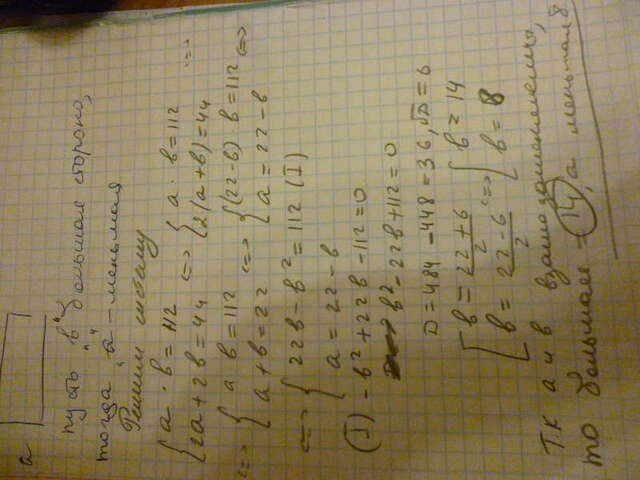 a
пусть "в" большая сторона,
тогда "а" - меньшая
Решим систему
{a · b = 112
{2a + 2b = 44 <=> {a · b = 112
{2(a+b) = 44 <=>
<=> {a · b = 112
{a + b = 22 <=> {(22-b) · b = 112
{a = 22 - b <=>
<=> {22b - b² = 112 (I)
{a = 22 - b
(I) - b² + 22b - 112 = 0
b² - 22b + 112 = 0
D = 484 - 448 = 36, √D = 6
[b = (22+6)/2
[b = (22-6)/2 <=> [b = 14
[b = 8
Т.к а и в взаимозаменяемы,
то большая = 14, а меньшая 8